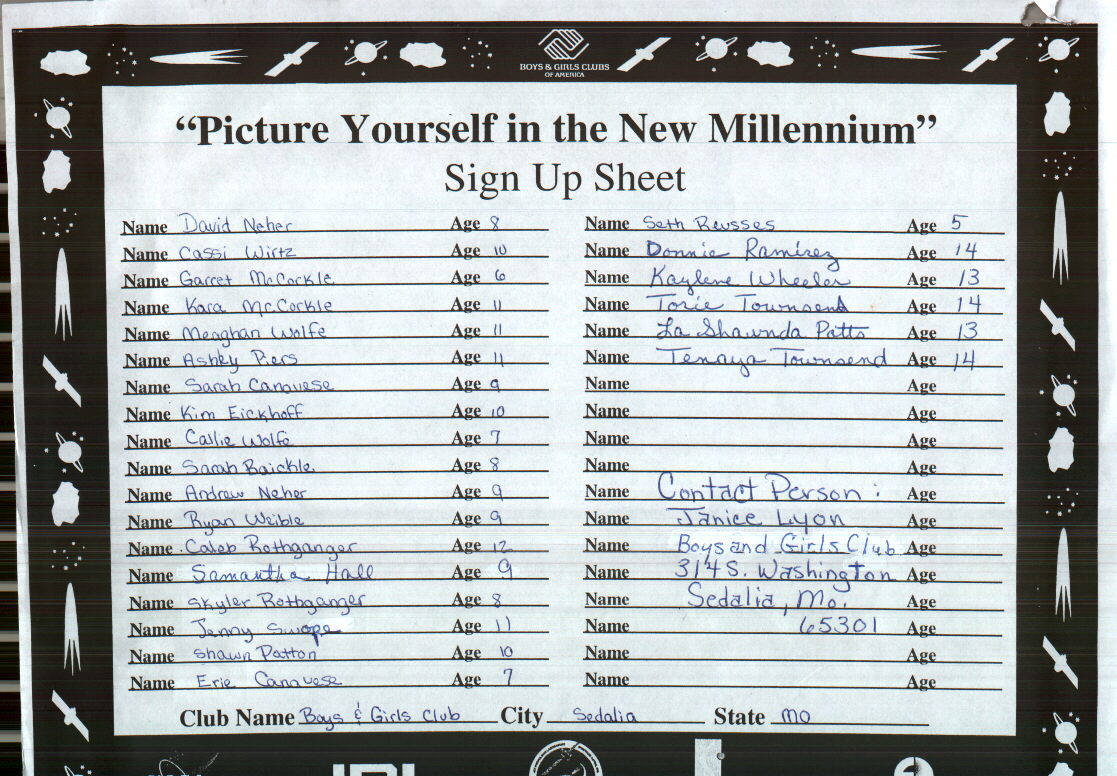 BOYS & GIRLS CLUBS
OF AMERICA
“Picture Yourself in the New Millennium”
Sign Up Sheet
Name David Neher Age 8
Name Cassi Wirtz Age 10
Name Garret McCorkle Age 6
Name Kara McCorkle Age 11
Name Meaghan Wolfe Age 11
Name Ashley Piers Age 11
Name Sarah Cannuese Age 9
Name Kim Eickhoff Age 10
Name Callie Wolfe Age 7
Name Sarah Baickle Age 8
Name Andrew Neher Age 9
Name Ryan Weible Age 9
Name Caleb Rothganger Age 12
Name Samantha Hall Age 9
Name Skyler Rothganger Age 8
Name Jenny Swope Age 11
Name Shawn Patton Age 10
Name Eric Cannuese Age 7
Name Seth Reusses Age 5
Name Donnie Ramirez Age 14
Name Kaylene Wheeler Age 13
Name Torie Townsend Age 14
Name La Shawnda Patts Age 13
Name Tenaya Townsend Age 14
Name Age
Name Age
Name Age
Name Age
Name Contact Person: Age
Name Janice Lyon Age
Name Boys and Girls Club Age
Name 314 S. Washington Age
Name Sedalia, Mo. Age
Name 65301 Age
Name Age
Name Age
Club Name Boys & Girls Club City Sedalia State MO